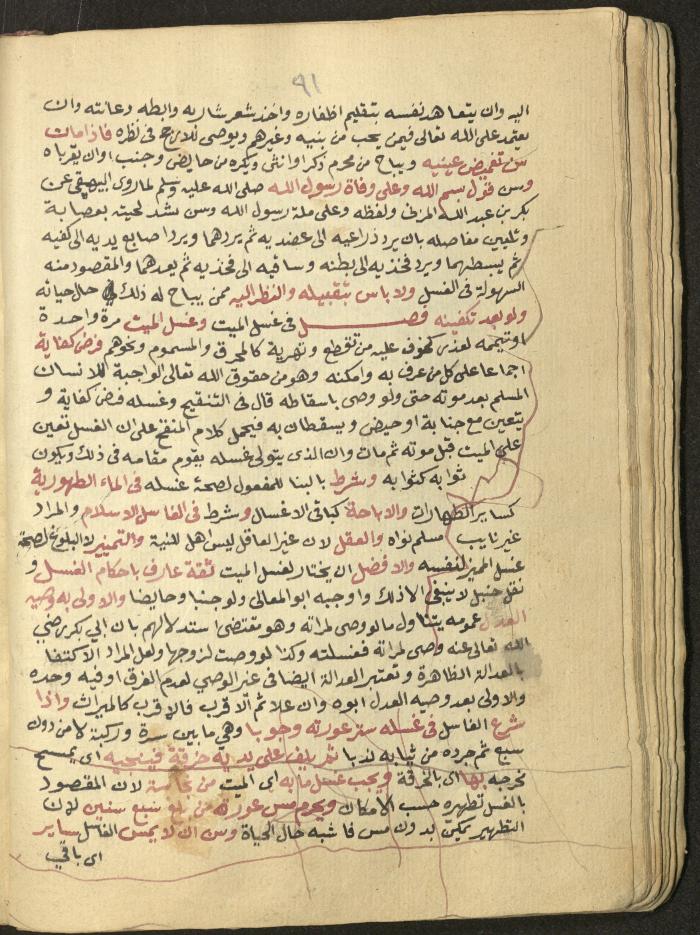 ٩١
اليه وان يتعاهد نفسه بتقليم اظفاره واخذ شعر شاربه وابطه وعانته وان
يعتمد على الله تعالى فيمن يحب من بنيه وغيرهم ويوصي للارجح في نظره فاذا مات
سن تغميض عينيه ويباح من محرم ذكر او انثى ويكره من حايض وجنب او ان يقرباه
وسن قول بسم الله وعلى وفاة رسول الله صلى الله عليه وسلم لما روى البيهقي عن
بكر بن عبد الله المزني ولفظه وعلى ملة رسول الله وسن شد لحيته بعصابة
وتليين مفاصله بان يرد ذراعيه الى عضديه ثم يردهما ويرد اصابع يديه الى كفيه
ثم يبسطهما ويرد فخذيه الى بطنه وساقيه الى فخذيه ثم يعدهما والمقصود منه
السهولة في الغسل ولا باس بتقبيله والنظر اليه ممن يباح له ذلك حال حياته
ولو بعد تكفينه فصل في غسل الميت وغسل الميت مرة واحدة
او تيممه لعذر كخوف عليه من تقطع وتهرية كالمحرق والمسموم ونحوهم فرض كفاية
اجماعا على كل من عرف به وامكنه وهو من حقوق الله تعالى الواجبة للانسان
المسلم بعد موته حتى ولو وصى باسقاطه قال في التنقيح وغسله فرض كفاية و
يتعين مع جنابة او حيض ويسقطان به فيحمل كلام المنقح على ان الغسل تعين
على الميت قبل موته ثم مات وان الذي يتولى غسله يقوم مقامه في ذلك ويكون
ثوابه كثوابه وشرط بالبنا للمفعول لصحة غسله في الماء الطهورية
كساير الطهارات والاباحة كباقي الاغسال وشرط في الغاسل الاسلام والمراد
غير نايب مسلم نواه والعقل لان غير العاقل ليس اهل للنية والتمييز لا البلوغ لصحة
غسل المميز لنفسه والافضل ان يختار لغسل الميت ثقة عارف باحكام الغسل و
نقل حنبل لا ينبغي الا ذلك واوجبه ابو المعالي ولو جنبا وحايضا والاولى به وصيه
العدل عمومه يتناول ما لو وصى لمراته وهو مقتضى استدلالهم بان ابي بكر رضي
الله تعالى عنه وصى لمراته فغسلته وكذا لو وصت لزوجها ولعل المراد الاكتفا
بالعدالة الظاهرة وتعتبر العدالة ايضا في غير الوصي لعدم الفرق او فيه وحده
والاولى بعد وصيه العدل ابوه وان علا ثم الاقرب فالاقرب كالميراث واذا
شرع الغاسل في غسله ستر عورته وجوبا وهي ما بين سرة وركبة كامن دون
سبع ثم جرده من ثيابه ندبا ثم يلف على يديه خرقة فينجيه اي يمسح
مخرجه بها اي بالخرقة ويجب غسل ما به اي الميت من نجاسة لان المقصود
بالغسل تطهيره حسب الامكان ويحرم مس عورة من بلغ سبع سنين لان
التطهير يمكن بدون مس فاشبه حال الحياة وسن ان لا يمس الغاسل ساير
اي باقي